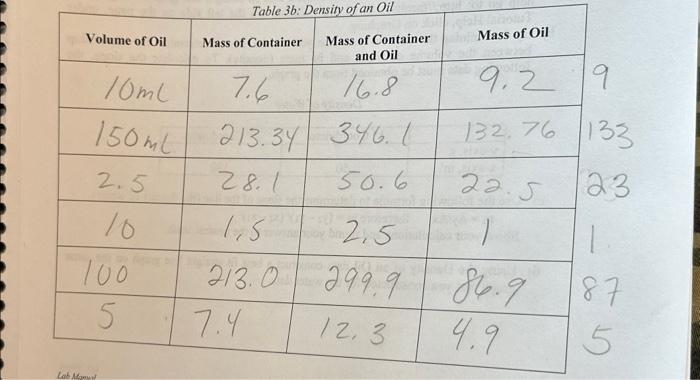 Table 3b: Density of an Oil
Volume of Oil Mass of Container Mass of Container and Oil Mass of Oil
10ml 7.6 16.8 9.2 9
150ml 213.34 346.1 132.76 133
2.5 28.1 50.6 22.5 23
10 1.5 2.5 1 1
100 213.0 299.9 86.9 87
5 7.4 12.3 4.9 5
Lab Manual